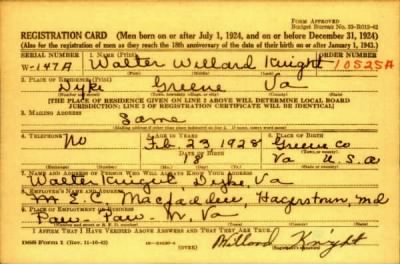 FORM APPROVED
Budget Bureau No. 33-R012-42
REGISTRATION CARD (Men born on or after July 1, 1924, and on or before December 31, 1924)
(Also for the registration of men as they reach the 18th anniversary of the date of their birth on or after January 1, 1943.)
SERIAL NUMBER 1. NAME (Print) ORDER NUMBER
W-147A Walter Willard Knight 10525A
(First) (Middle) (Last)
2. PLACE OF RESIDENCE (Print)
Dyke Greene Va
[THE PLACE OF RESIDENCE GIVEN ON LINE 2 ABOVE WILL DETERMINE LOCAL BOARD
JURISDICTION; LINE 2 OF REGISTRATION CERTIFICATE WILL BE IDENTICAL]
3. MAILING ADDRESS
Same
4. TELEPHONE 6. PLACE OF BIRTH
No Feb 23 1928 Greene Co
DATE OF BIRTH
18 Va U.S.a
7. NAME AND ADDRESS OF PERSON WHO WILL ALWAYS KNOW YOUR ADDRESS
Walter Knight, Dyke, Va
8. EMPLOYER'S NAME AND ADDRESS
E.C. Hagerstown, md
9. PLACE OF EMPLOYMENT OR BUSINESS
Paw-Paw W. Va
I AFFIRM THAT I HAVE VERIFIED ABOVE ANSWERS AND THAT THEY ARE TRUE.
DSS Form 1 (Rev. 11-16-42) (OVER) Willard Knight